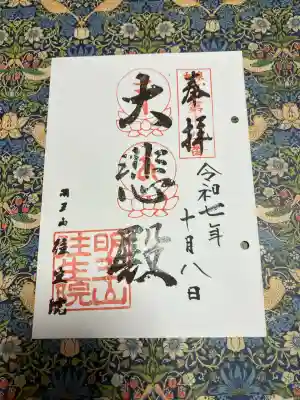 奉拝
令和七年
十月八日
大悲殿
明王山
往生院
明王山
往生院